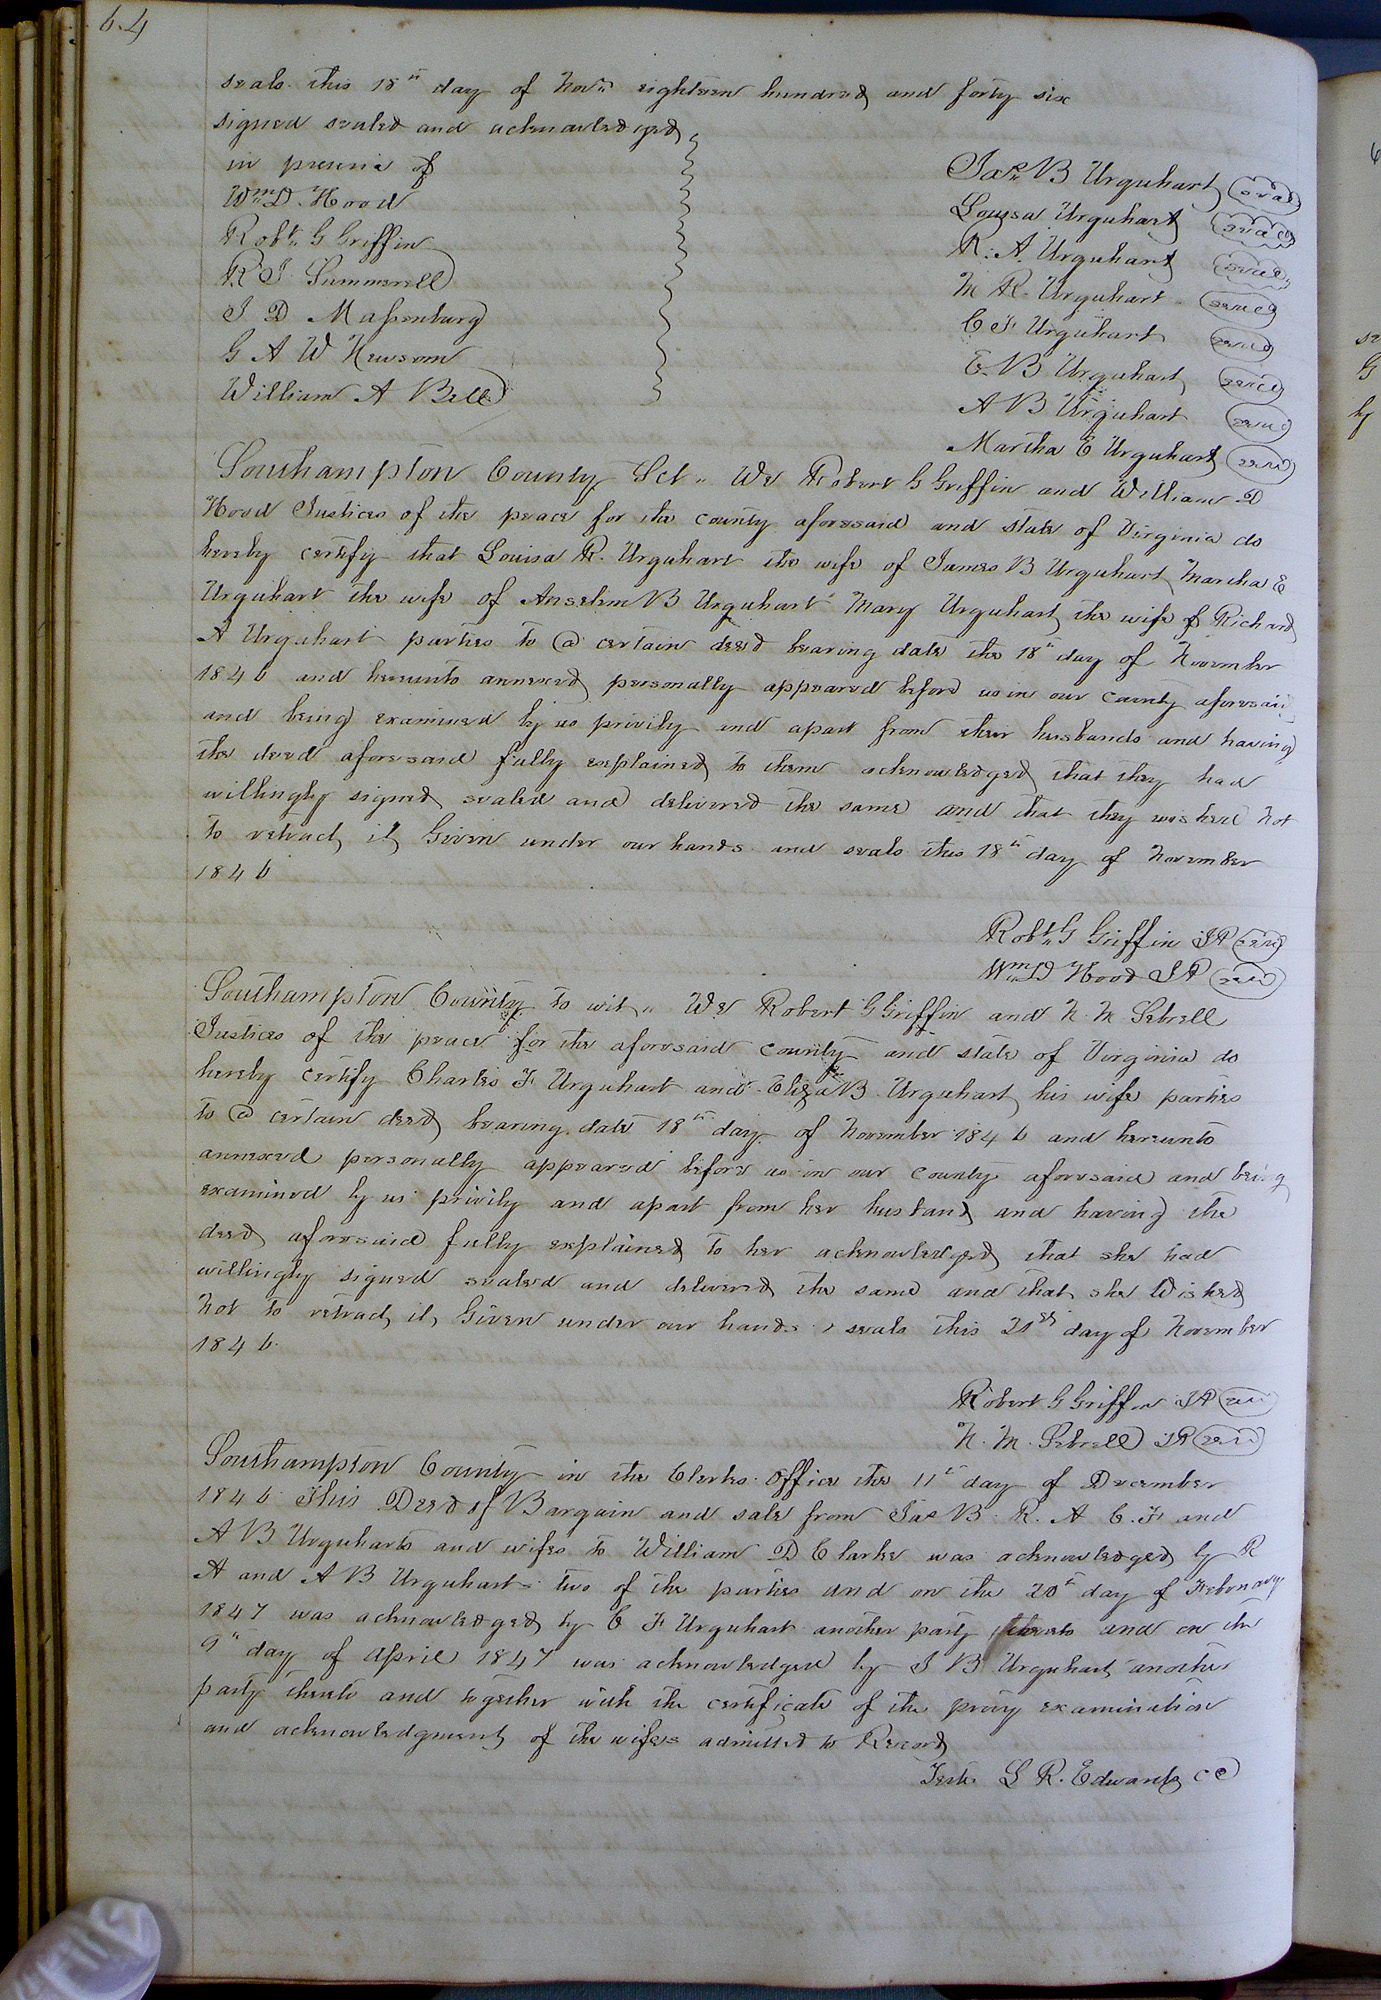 64
seals this 18th day of Novr eighteen hundred and forty six
signed sealed and acknowledged
in presence of
Wm D. Hood
Robt G Griffin
R J Summerell
J D Massenburg
G A W Newsom
William A Bell
Jas B Urquhart seal
Louisa Urquhart seal
R. A. Urquhart seal
M R. Urquhart seal
C F Urquhart seal
E. B Urquhart seal
A B Urquhart seal
Martha E Urquhart seal
Southampton County Sct " We Robert G Griffin and William D
Hood Justices of the peace for the county aforesaid and state of Virginia do
hereby certify that Louisa R. Urquhart the wife of James B Urquhart Martha E
Urquhart the wife of Anselem B Urquhart Mary Urquhart the wife of Richard
A Urquhart parties to a certain deed bearing date the 18th day of November
1846 and hereunto annexed personally appeared before us in our county aforesaid
and being examined by us privily and apart from their husbands and having
the deed aforesaid fully explained to them acknowledged that they had
willingly signed sealed and delivered the same and that they wished not
to retract it, Given under our hands and seals this 18th day of November
1846
Robt G Griffin JP seal
Wm D Hood JP seal
Southampton County to wit " We Robert G Griffin and N. M. Sebrell
Justices of the peace for the aforesaid county and state of Virginia do
hereby certify Charles F Urquhart and Eliza B. Urquhart his wife parties
to a certain deed bearing date 18th day of November 1846 and hereunto
annexed personally appeared before us in our county aforesaid and being
examined by us privily and apart from her husband and having the
deed aforesaid fully explained to her acknowledged that she had
willingly signed sealed and delivered the same and that she Wished
not to retract it, Given under our hands & seals this 21st day of November
1846.
Robert G Griffin JP seal
N. M. Sebrell JP seal
Southampton County in the Clerks Office the 11th day of December
1846 This Deed of Bargain and sale from Jas B. R. A C. F and
A B Urquharts and wifes to William D Clarke was acknowledged by R
A and A B Urquharts two of the parties and on the 20th day of February
1847 was acknowledged by C F Urquhart another party thereto and on the
9th day of April 1847 was acknowledged by J B Urquhart another
party thereto and together with the certificate of the privy examination
and acknowledgment of the wifes admitted to Record
Teste L R. Edwards CC